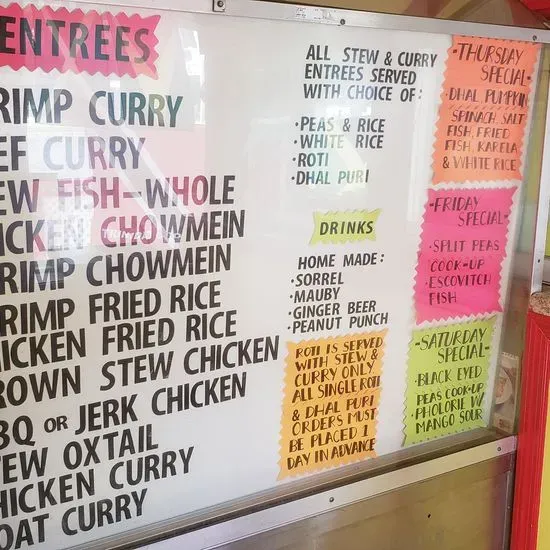 ENTREES
RIMP CURRY
EF CURRY
EW FISH-WHOLE
ICKEN CHOWMEIN
RIMP CHOWMEIN
RIMP FRIED RICE
HICKEN FRIED RICE
ROWN STEW CHICKEN
BQ OR JERK CHICKEN
EW OXTAIL
HICKEN CURRY
OAT CURRY
ALL STEW & CURRY
ENTREES SERVED
WITH CHOICE OF:
•PEAS & RICE
•WHITE RICE
•ROTI
•DHAL PURI
DRINKS
HOME MADE:
•SORREL
•MAUBY
•GINGER BEER
•PEANUT PUNCH
ROTI IS SERVED
WITH STEW &
CURRY ONLY
ALL SINGLE ROTI
& DHAL PURI
ORDERS MUST
BE PLACED 1
DAY IN ADVANCE
-THURSDAY
SPECIAL-
•DHAL PUMPKIN
SPINACH, SALT
FISH, FRIED
FISH, KARELA
& WHITE RICE
-FRIDAY
SPECIAL-
•SPLIT PEAS
COOK-UP
•ESCOVITCH
FISH
-SATURDAY
SPECIAL-
•BLACK EYED
PEAS COOK-UP
•PHOLORIE W/
MANGO SOUR